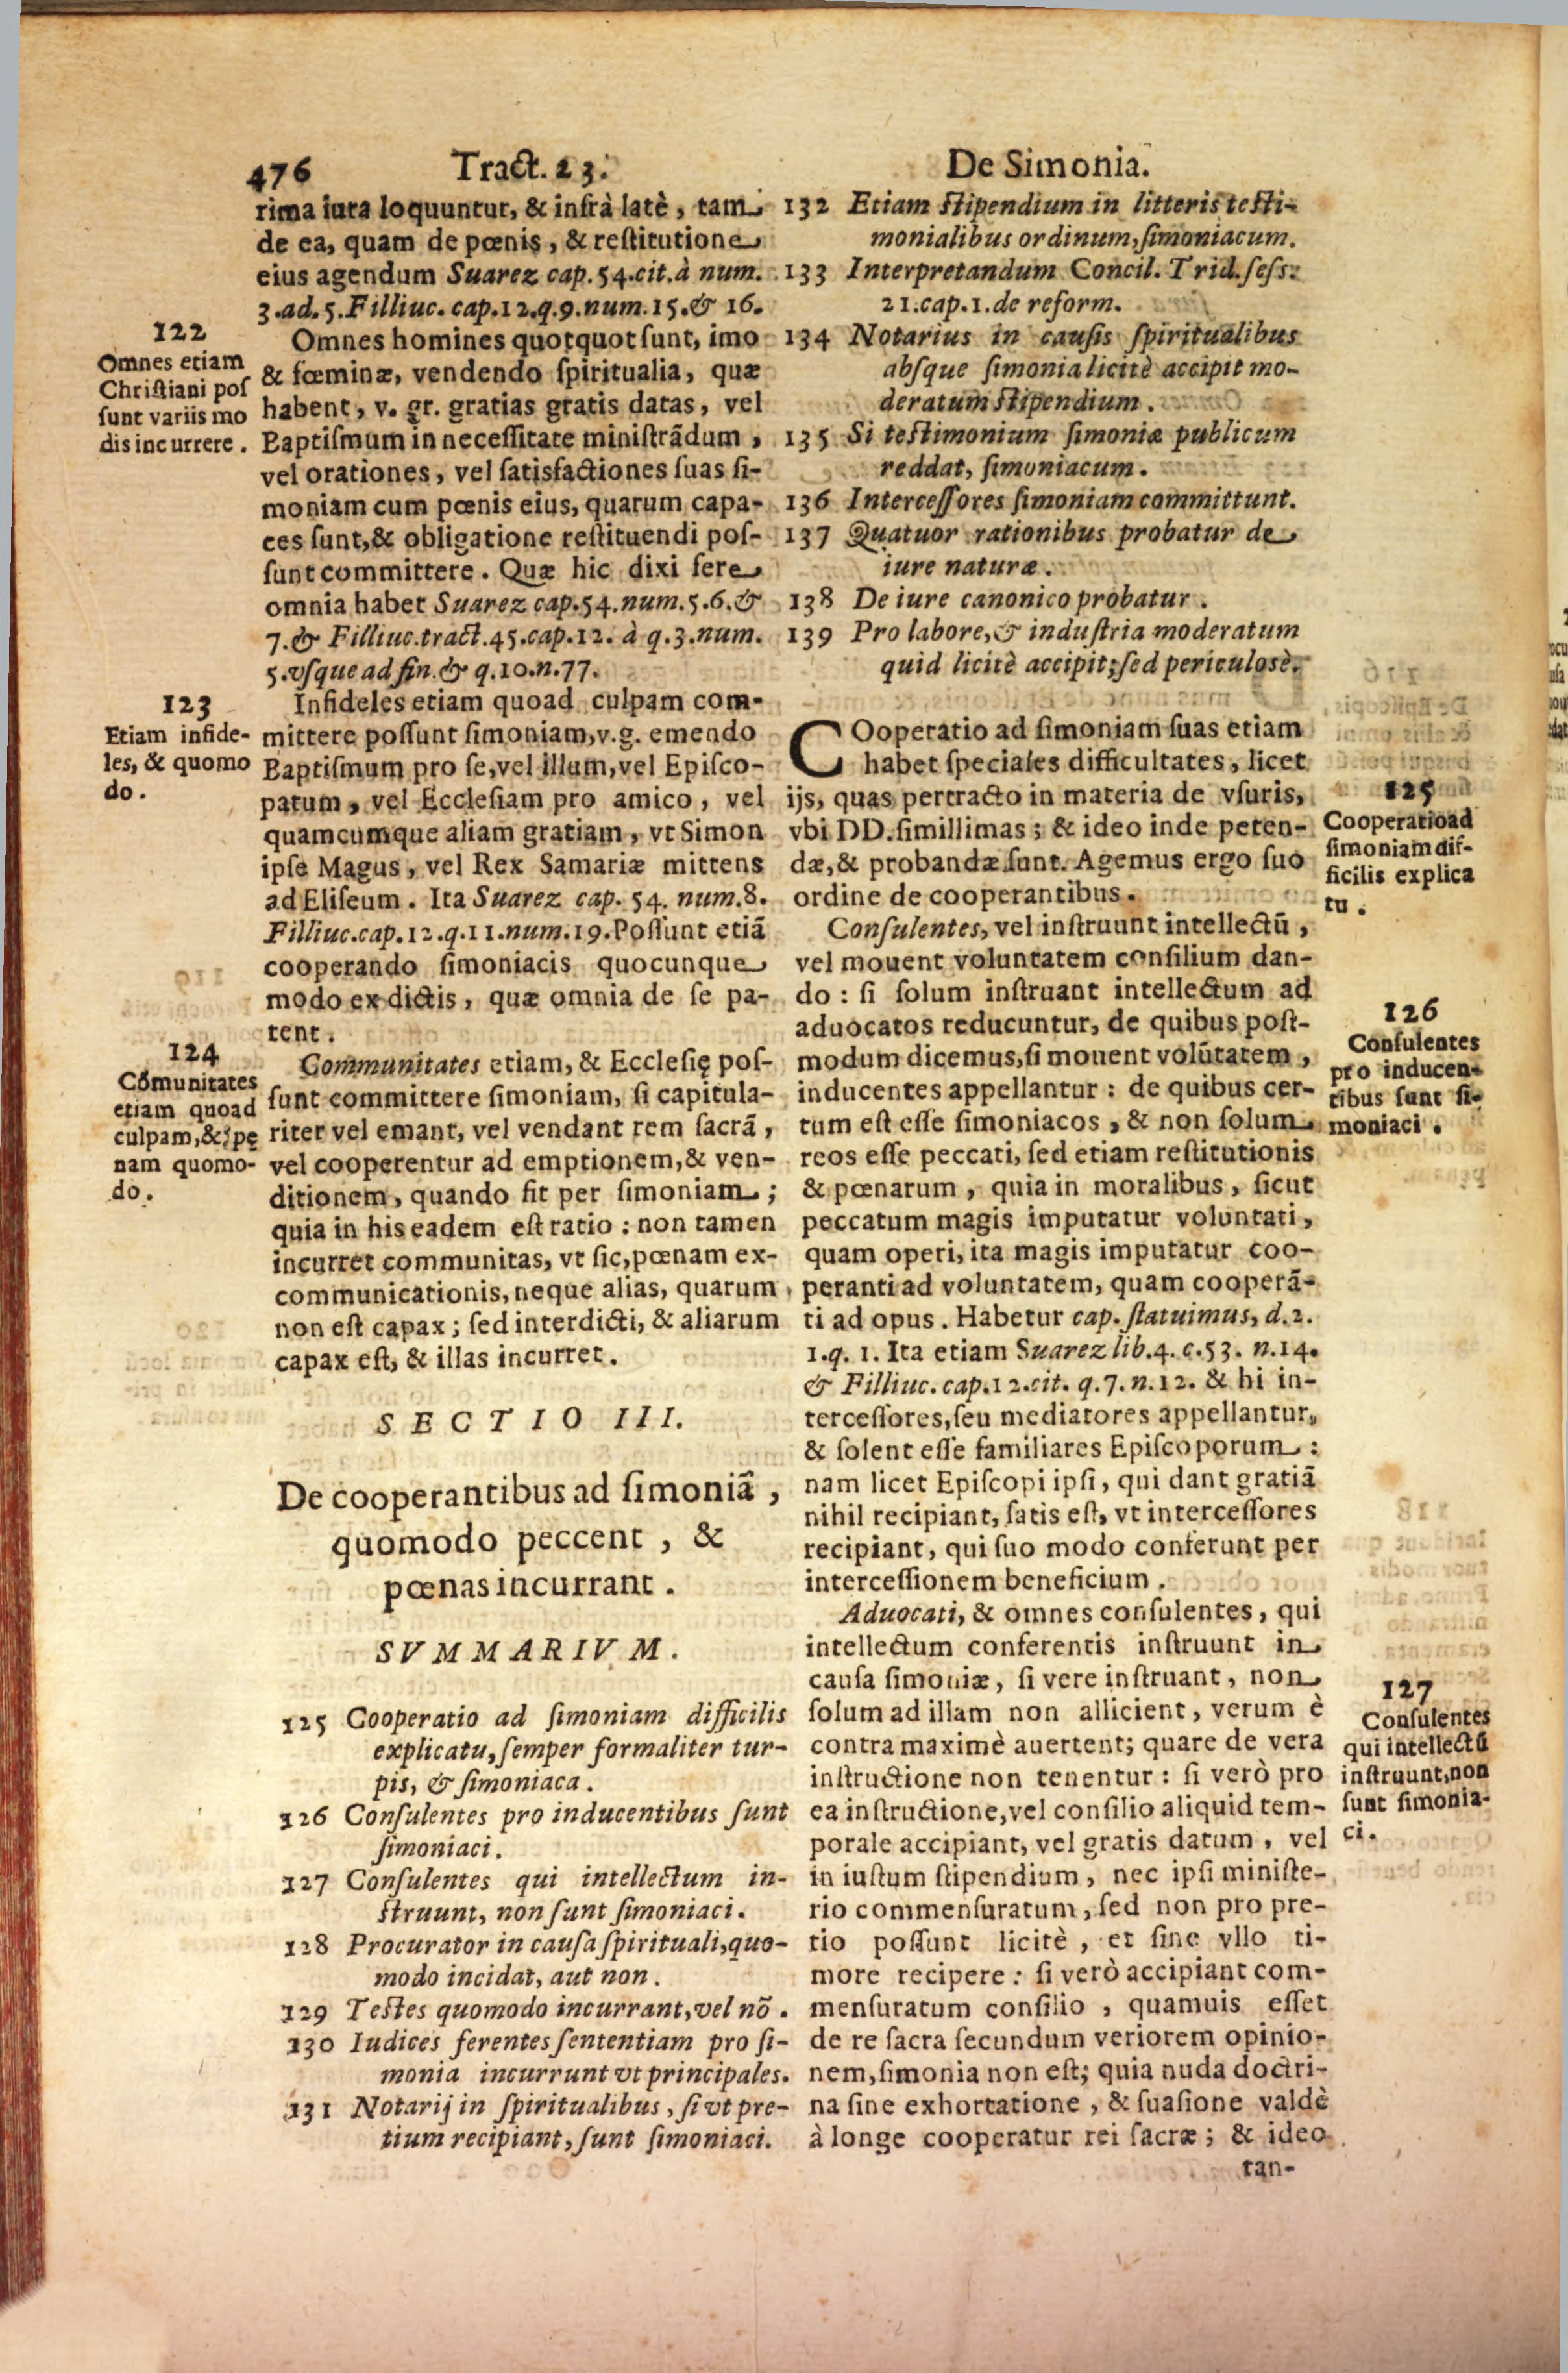 476 Tract. 23. De Simonia.
rima iura loquuntur, & infrà latè, tam
de ea, quam de pœnis, & restitutione
eius agendum Suarez cap. 54. cit. à num.
3. ad. 5. Filliuc. cap. 12. q. 9. num. 15. & 16.
122
Omnes etiam
Christiani pos
sunt variis mo
dis incurrere.
Omnes homines quotquot sunt, imo
& fœminæ, vendendo spiritualia, quæ
habent, v. gr. gratias gratis datas, vel
Baptismum in necessitate ministrādum,
vel orationes, vel satisfactiones suas si-
moniam cum pœnis eius, quarum capa-
ces sunt, & obligatione restituendi pos-
sunt committere. Quæ hic dixi fere
omnia habet Suarez cap. 54. num. 5. 6. &
7. & Filliuc. tract. 45. cap. 12. à q. 3. num.
5. vsque ad fin. & q. 10. n. 77.
123
Etiam infide-
les, & quomo
do.
Infideles etiam quoad culpam com-
mittere possunt simoniam, v.g. emendo
Baptismum pro se, vel illum, vel Episco-
patum, vel Ecclesiam pro amico, vel
quamcumque aliam gratiam, vt Simon
ipse Magus, vel Rex Samariæ mittens
ad Eliseum. Ita Suarez cap. 54. num. 8.
Filliuc. cap. 12. q. 11. num. 19. Possunt etiā
cooperando simoniacis quocunque
modo ex dictis, quæ omnia de se pa-
tent.
124
Cōmunitates
etiam quoad
culpam, & pę
nam quomo-
do.
Communitates etiam, & Ecclesię pos-
sunt committere simoniam, si capitula-
riter vel emant, vel vendant rem sacrā,
vel cooperentur ad emptionem, & ven-
ditionem, quando fit per simoniam;
quia in his eadem est ratio: non tamen
incurret communitas, vt sic, pœnam ex-
communicationis, neque alias, quarum
non est capax; sed interdicti, & aliarum
capax est, & illas incurret.
SECTIO III.
De cooperantibus ad simoniā,
quomodo peccent, &
pœnas incurrant.
SVMMARIVM.
125 Cooperatio ad simoniam difficilis
explicatu, semper formaliter tur-
pis, & simoniaca.
126 Consulentes pro inducentibus sunt
simoniaci.
127 Consulentes qui intellectum in-
struunt, non sunt simoniaci.
128 Procurator in causa spirituali, quo-
modo incidat, aut non.
129 Testes quomodo incurrant, vel nō.
130 Iudices ferentes sententiam pro si-
monia incurrunt vt principales.
131 Notarij in spiritualibus, si vt pre-
tium recipiant, sunt simoniaci.
132 Etiam stipendium in litteris testi-
monialibus ordinum, simoniacum.
133 Interpretandum Concil. Trid. sess.
21. cap. 1. de reform.
134 Notarius in causis spiritualibus
absque simonia licitè accipit mo-
deratum stipendium.
135 Si testimonium simoniæ publicum
reddat, simoniacum.
136 Intercessores simoniam committunt.
137 Quatuor rationibus probatur de
iure naturæ.
138 De iure canonico probatur.
139 Pro labore, & industria moderatum
quid licitè accipit; sed periculosè.
COoperatio ad simoniam suas etiam
habet speciales difficultates, licet
ijs, quas pertracto in materia de vsuris,
vbi DD. simillimas; & ideo inde peten-
dæ, & probandæ sunt. Agemus ergo suo
ordine de cooperantibus.
125
Cooperatio ad
simoniam dif-
ficilis explica
tu.
Consulentes, vel instruunt intellectū,
vel mouent voluntatem consilium dan-
do: si solum instruant intellectum ad
aduocatos reducuntur, de quibus post-
modum dicemus, si mouent volūtatem,
inducentes appellantur: de quibus cer-
tum est esse simoniacos, & non solum
reos esse peccati, sed etiam restitutionis
& pœnarum, quia in moralibus, sicut
peccatum magis imputatur voluntati,
quam operi, ita magis imputatur coo-
peranti ad voluntatem, quam cooperā-
ti ad opus. Habetur cap. statuimus, d. 2.
1. q. 1. Ita etiam Suarez lib. 4. c. 53. n. 14.
& Filliuc. cap. 12. cit. q. 7. n. 12. & hi in-
tercessores, seu mediatores appellantur,
& solent esse familiares Episcoporum:
nam licet Episcopi ipsi, qui dant gratiā
nihil recipiant, satis est, vt intercessores
recipiant, qui suo modo conferunt per
intercessionem beneficium.
126
Consulentes
pro inducen-
tibus sunt si-
moniaci.
Aduocati, & omnes consulentes, qui
intellectum conferentis instruunt in
causa simoniæ, si vere instruant, non
solum ad illam non allicient, verum è
contra maximè auertent; quare de vera
instructione non tenentur: si verò pro
ea instructione, vel consilio aliquid tem-
porale accipiant, vel gratis datum, vel
in iustum stipendium, nec ipsi ministe-
rio commensuratum, sed non pro pre-
tio possunt licitè, et sine vllo ti-
more recipere: si verò accipiant com-
mensuratum consilio, quamuis esset
de re sacra secundum veriorem opinio-
nem, simonia non est; quia nuda doctri-
na sine exhortatione, & suasione valdè
à longe cooperatur rei sacræ; & ideo
tan-
127
Consulentes
qui intellectū
instruunt, non
sunt simonia-
ci.